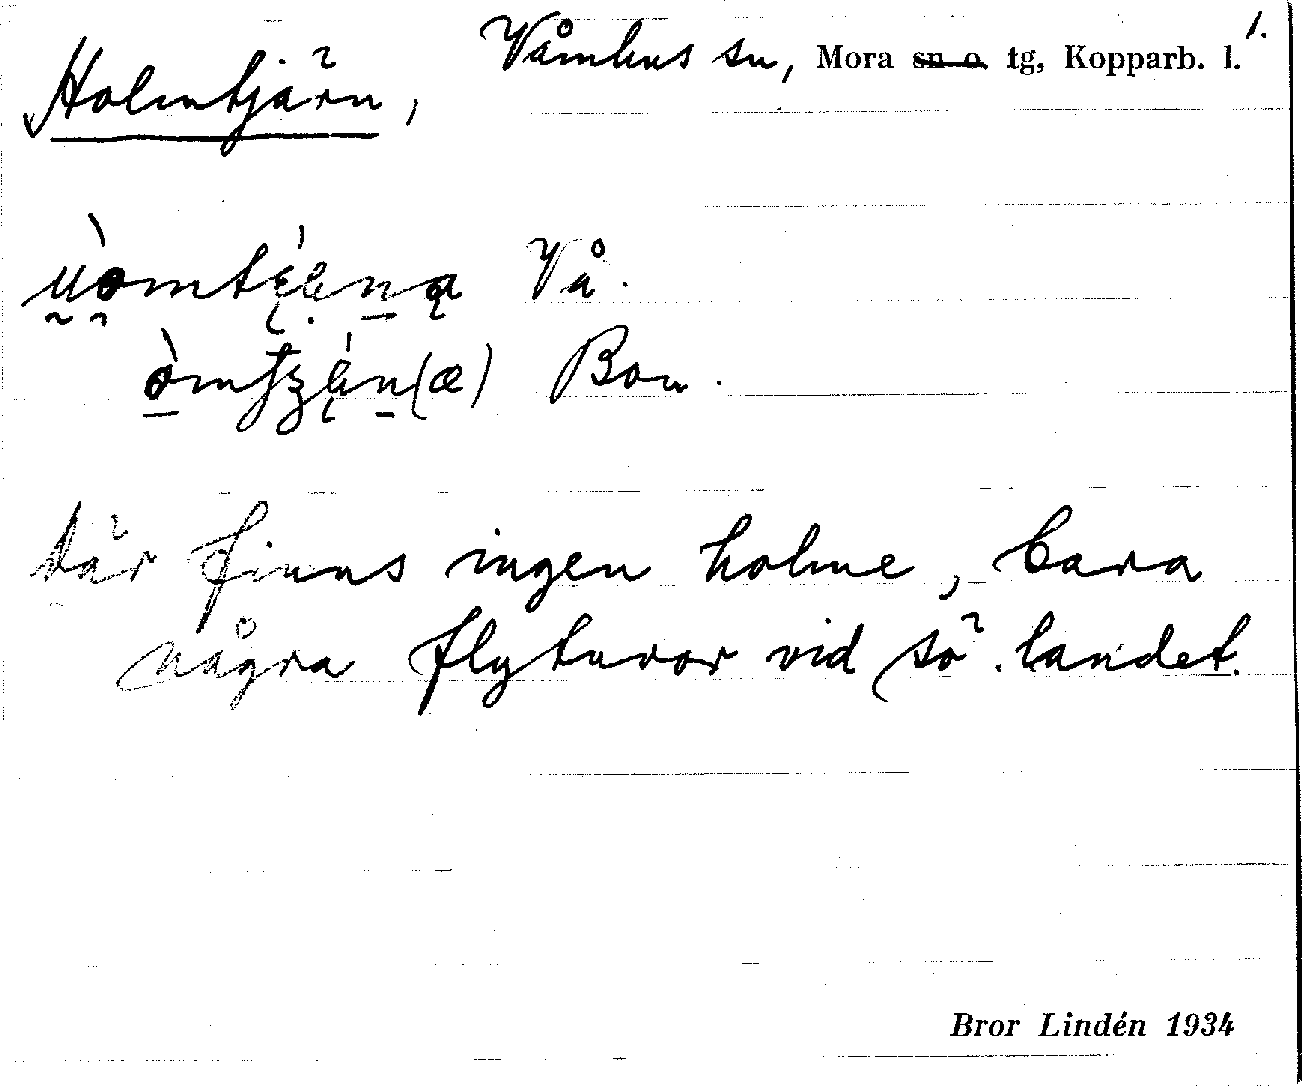 1.
Våmhus sn, Mora sn o. tg, Kopparb. l.
Holmtjärn,
Vå.
Bon.
där finns ingen holme, bara
några flytuvor vid sö. landet.
Bror Lindén 1934